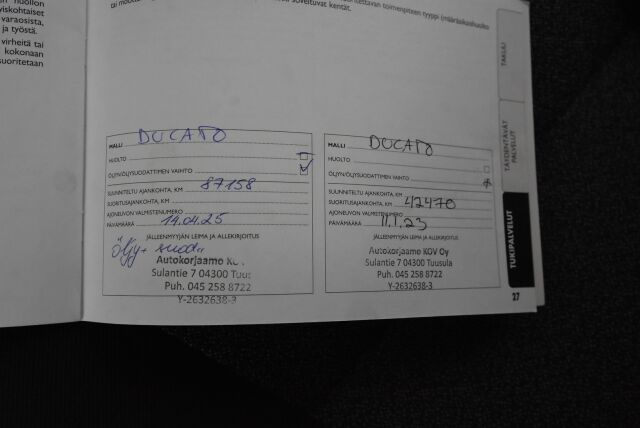 n huollon
yiskohtaiset
varaosista,
ja työstä.
virheitä tai
kokonaan
suoritetaan
soveltuvat kentät.
toimenpiteen tyyppi (määräaikaishuolto
TAKUU
TÄYDENTÄVÄT PALVELUT
TUKIPALVELUT
MALLI DUCATO
HUOLTO
ÖLJYN/ÖLJYSUODATTIMEN VAIHTO
SUUNNITELTU AJANKOHTA, KM 87158
SUORITUSAJANKOHTA, KM
AJONEUVON VALMISTENUMERO
PÄIVÄMÄÄRÄ 14.04.25
JÄLLEENMYYJÄN LEIMA JA ALLEKIRJOITUS
öljy+
Autokorjaamo KOV
Sulantie 7 04300 Tuus
Puh. 045 258 8722
Y-2632638-3
MALLI DUCATO
HUOLTO
ÖLJYN/ÖLJYSUODATTIMEN VAIHTO
SUUNNITELTU AJANKOHTA, KM
SUORITUSAJANKOHTA, KM 42470
AJONEUVON VALMISTENUMERO
PÄIVÄMÄÄRÄ 11.1.23
JÄLLEENMYYJÄN LEIMA JA ALLEKIRJOITUS
Autokorjaamo KOV Oy
Sulantie 7 04300 Tuusula
Puh. 045 258 8722
Y-2632638-3
27